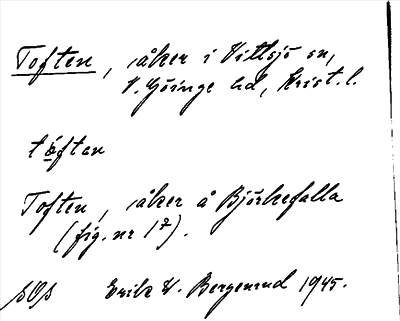 Toften, åker i Vittsjö sn,
V. Göinge hd, Krist. l.
tåften
Toften, åker å Björkefalla
(fig. nr 17).
Erik W. Bergenrud 1945.